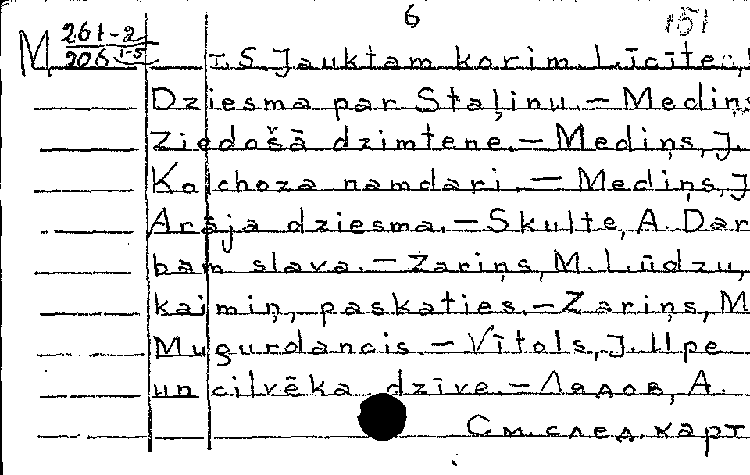 6
151
M 261-2
206 1-5
I. S. Jauktam korim. Līcītes,
Dziesma par Staļinu. – Mediņš
Ziedošā dzimtene. – Mediņš, J.
Kolchoza namdari. – Mediņš, J
Arāja dziesma. – Skulte, A. Dar
bam slava. – Zariņš, M. Lūdzu,
kaimiņ, paskaties. – Zariņš, M
Mugurdancis. – Vītols, J. Upe
un cilvēka dzīve. – Лядов, А.
См. след. карт